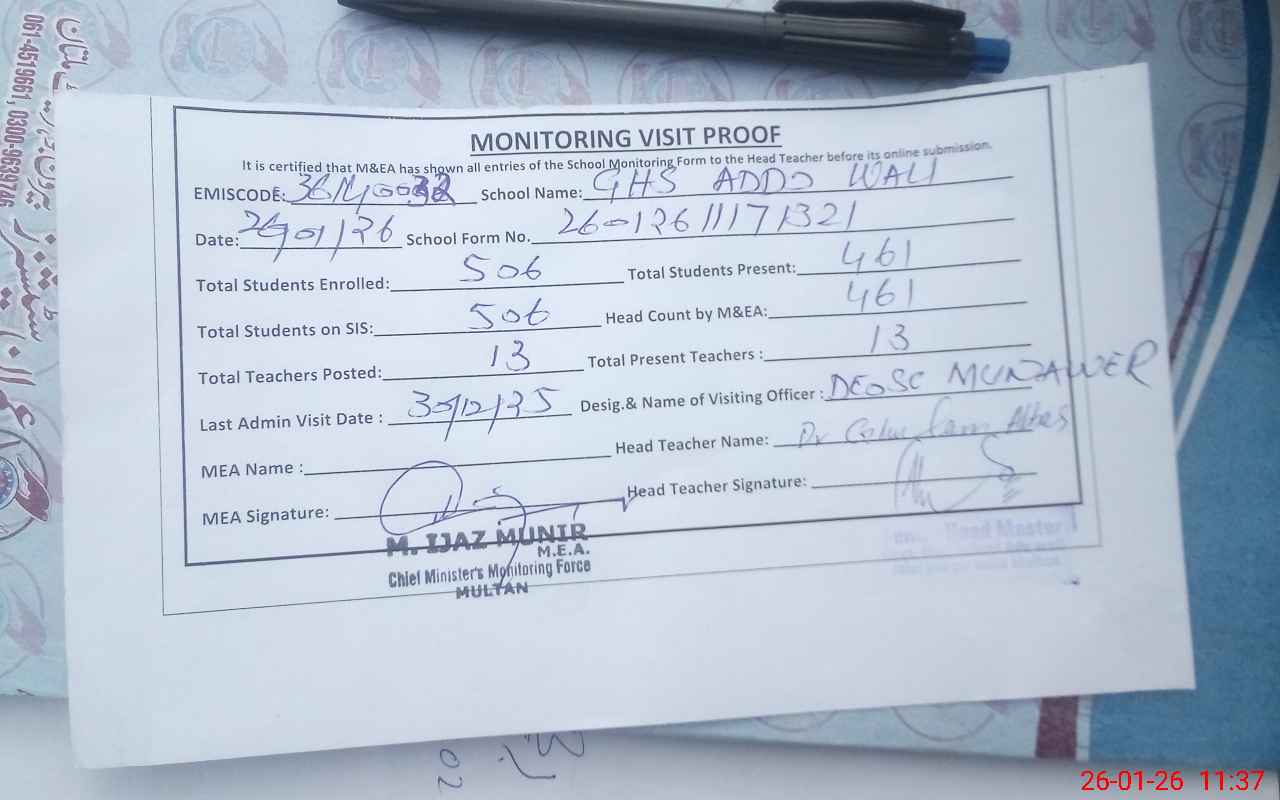 061-4519661, 0300-9639746
MONITORING VISIT PROOF
It is certified that M&EA has shown all entries of the School Monitoring Form to the Head Teacher before its online submission.
EMISCODE: School Name: GHS ADDO WALI
Date: 26/01/26 School Form No. 260126111171321
Total Students Enrolled: 506 Total Students Present: 461
Total Students on SIS: 506 Head Count by M&EA: 461
Total Teachers Posted: 13 Total Present Teachers : 13
Last Admin Visit Date : 30/12/25 Desig.& Name of Visiting Officer : DEOSC MUNAWER
MEA Name : Head Teacher Name: Dr
MEA Signature: Head Teacher Signature:
M. IJAZ MUNIR
M.E.A.
Chief Minister's Monitoring Force
MULTAN
Head Master
02
26-01-26 11:37